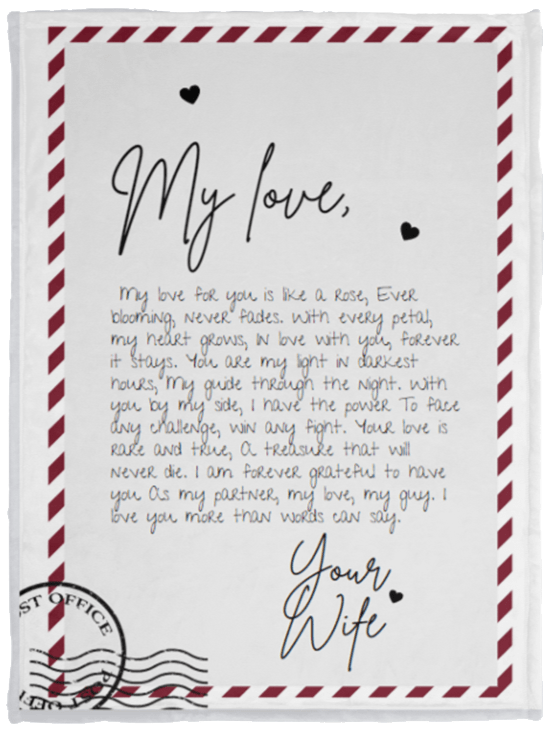 My love,
My love for you is like a rose, Ever
blooming, never fades. With every petal,
my heart grows, In love with you, forever
it stays. You are my light in darkest
hours, My guide through the night. With
you by my side, I have the power To face
any challenge, win any fight. Your love is
rare and true, A treasure that will
never die. I am forever grateful to have
you As my partner, my love, my guy. I
love you more than words can say.
Your
Wife
ST OFFICE
POST OFF